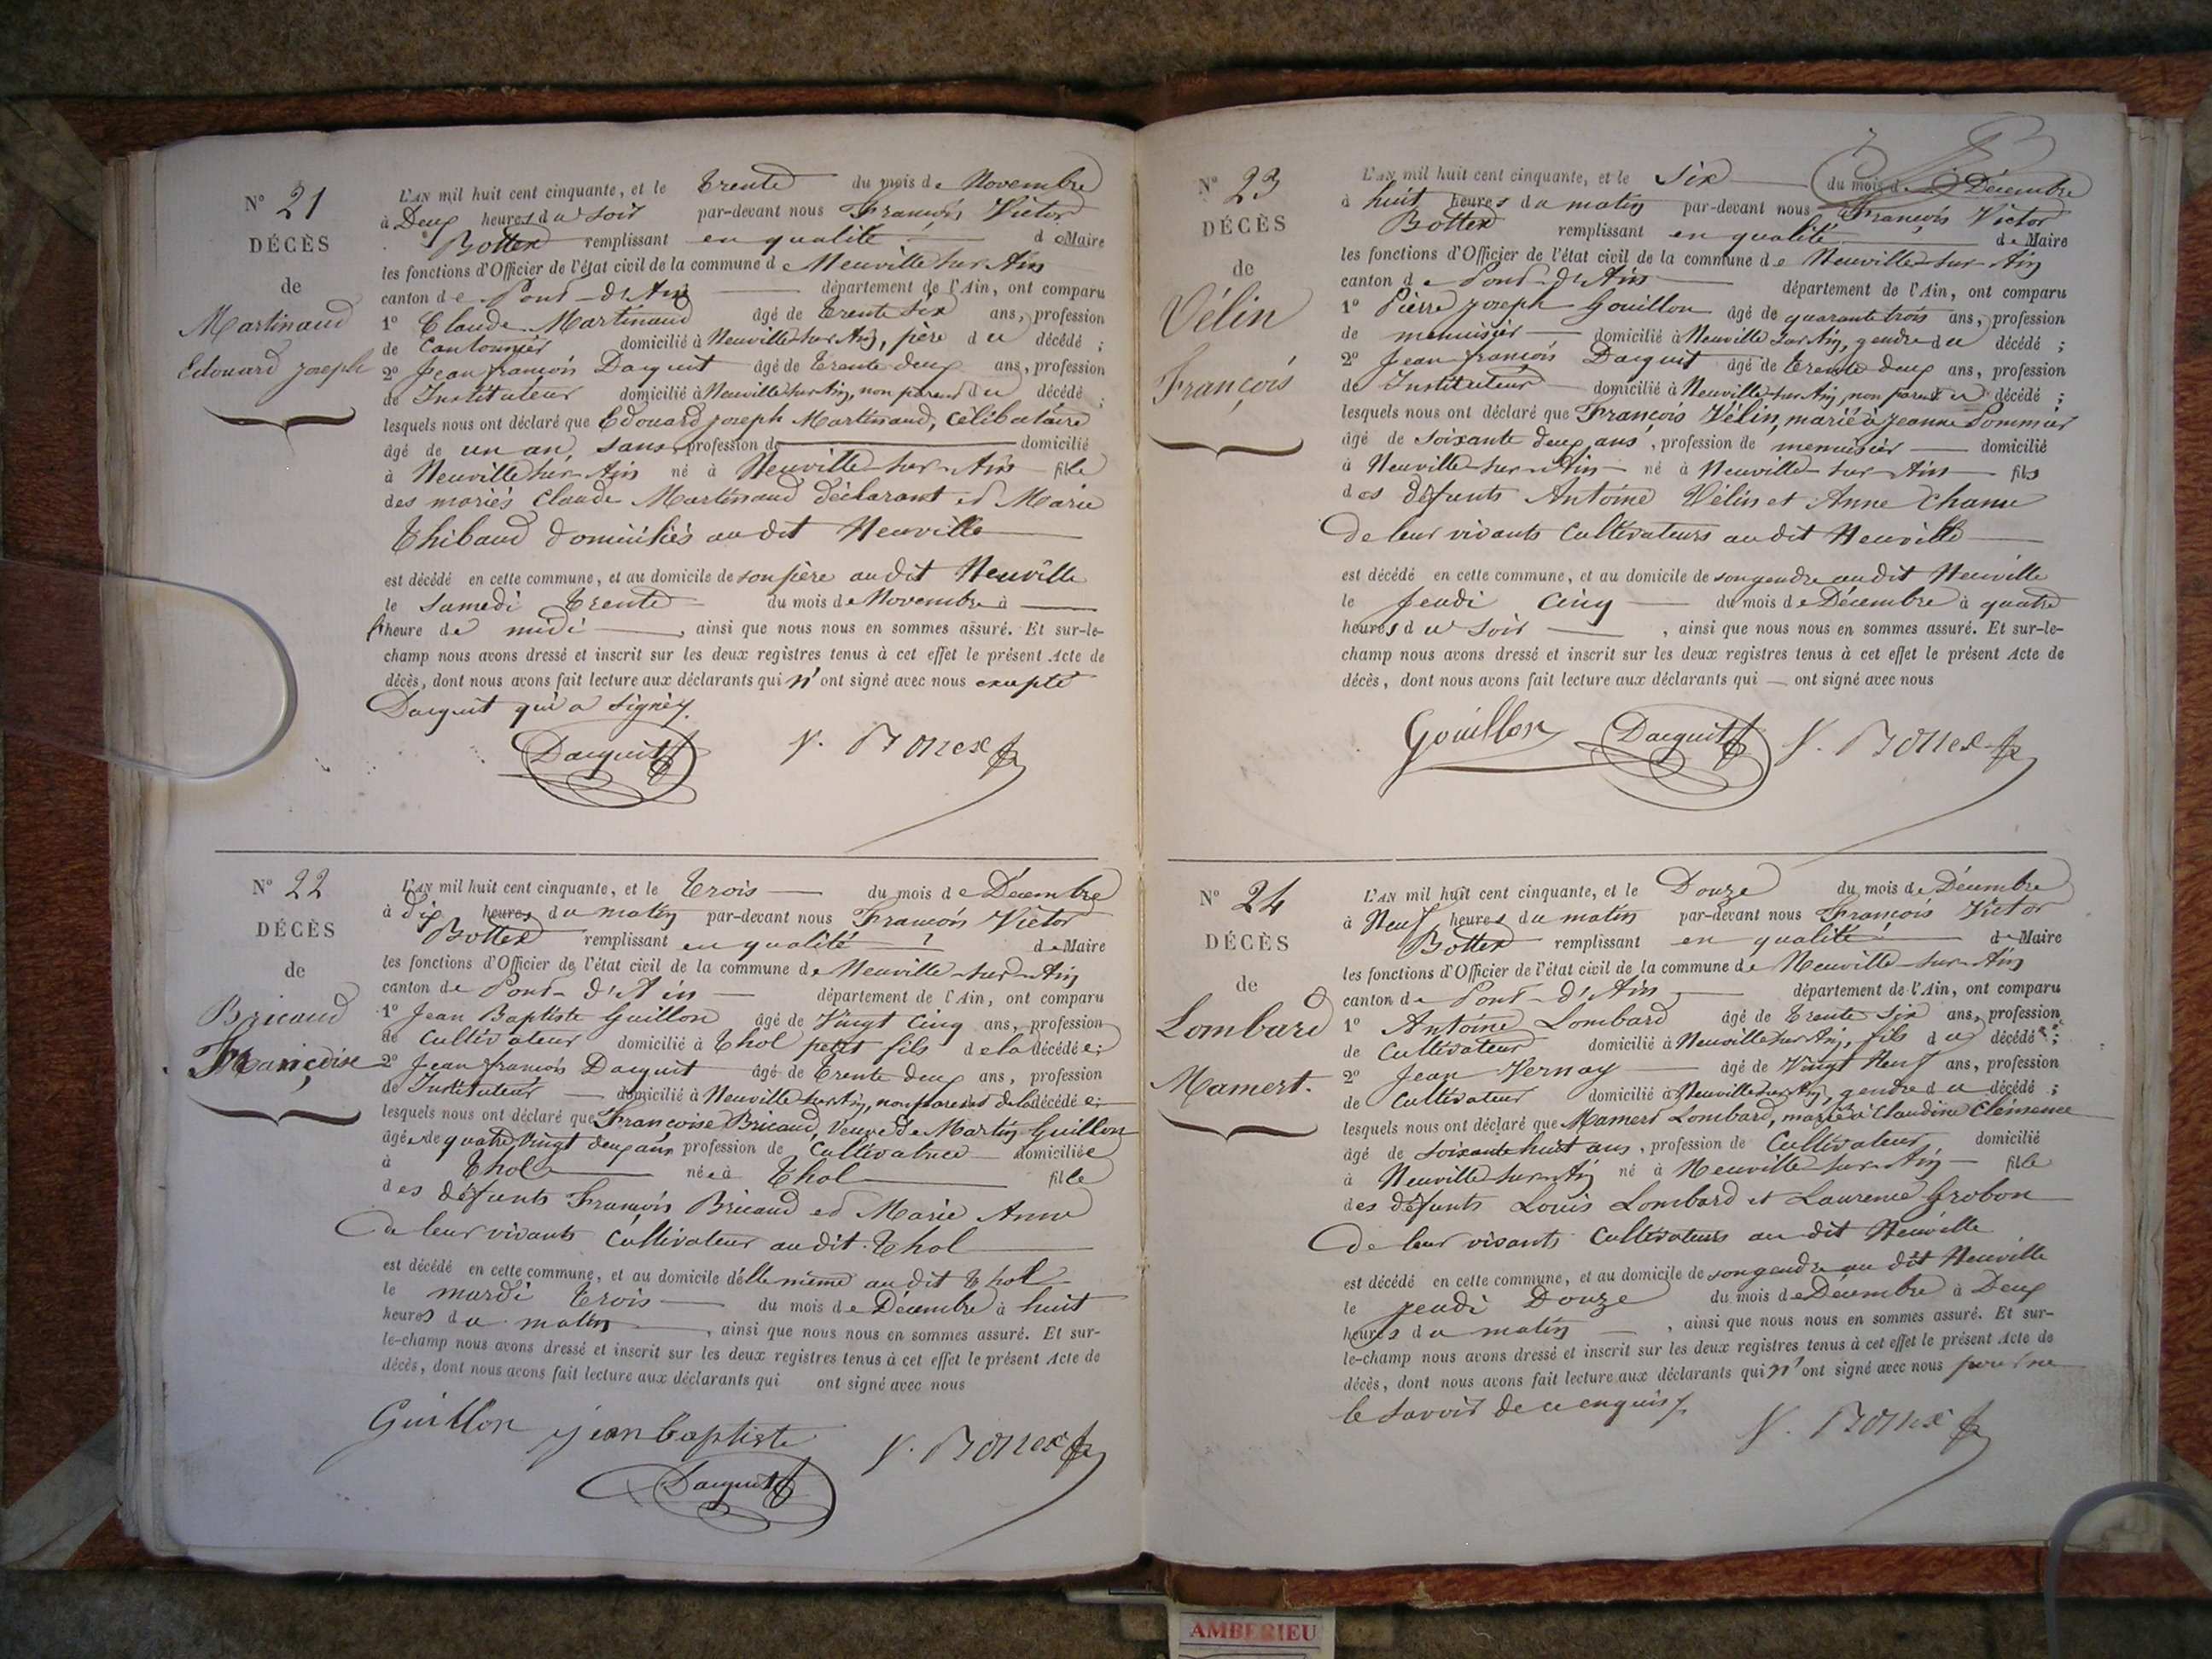 N° 21
DÉCÈS
de
Martinaud
Edouard Joseph
L'AN mil huit cent cinquante, et le trente du mois de Novembre
à Deux heures du soir par-devant nous François Victor
Bottex remplissant en qualité de Maire
les fonctions d'Officier de l'état civil de la commune de Neuville sur Ain
canton de Pont-d'Ain département de l'Ain, ont comparu
1° Claude Martinaud âgé de trente six ans, profession
de Cantonnier domicilié à Neuville sur Ain, père du décédé ;
2° Jean françois Dacquit âgé de trente deux ans, profession
de Instituteur domicilié à Neuville sur Ain, non parent du décédé ;
lesquels nous ont déclaré que Edouard joseph Martinaud, Célibataire
âgé de un an, sans profession de domicilié
à Neuville sur Ain né à Neuville sur Ain fils
des mariés Claude Martinaud déclarant et Marie
Thibaud domiciliés au dit Neuville
est décédé en cette commune, et au domicile de son père audit Neuville
le samedi trente du mois de Novembre à
heure de midi, ainsi que nous nous en sommes assuré. Et sur-le-
champ nous avons dressé et inscrit sur les deux registres tenus à cet effet le présent Acte de
décès, dont nous avons fait lecture aux déclarants qui n'ont signé avec nous excepté
Dacquit qui a signé.
Dacquit V. Bottex
N° 22
DÉCÈS
de
Bricaud
Françoise
L'AN mil huit cent cinquante, et le trois du mois de Décembre
à dix heures du matin par-devant nous François Victor
Bottex remplissant en qualité de Maire
les fonctions d'Officier de l'état civil de la commune de Neuville-sur-Ain
canton de Pont-d'Ain département de l'Ain, ont comparu
1° Jean Baptiste Guillon âgé de Vingt Cinq ans, profession
de Cultivateur domicilié à Thol petit fils de la décédée ;
2° Jean françois Dacquit âgé de trente deux ans, profession
de Instituteur domicilié à Neuville sur Ain, non parent de la décédée ;
lesquels nous ont déclaré que Françoise Bricaud, Veuve de Martin Guillon
âgée de quatre Vingt deux ans profession de Cultivatrice domiciliée
à Thol née à Thol fille
des défunts François Bricaud et Marie Anne
de leur vivants Cultivateur au dit Thol
est décédé en cette commune, et au domicile d'elle même au dit Thol
le mardi trois du mois de Décembre à huit
heures du matin, ainsi que nous nous en sommes assuré. Et sur-
le-champ nous avons dressé et inscrit sur les deux registres tenus à cet effet le présent Acte de
décès, dont nous avons fait lecture aux déclarants qui ont signé avec nous
Guillon jean baptiste V. Bottex
Dacquit
N° 23
DÉCÈS
de
Vélin
François
L'AN mil huit cent cinquante, et le six du mois de Décembre
à huit heures du matin par-devant nous François Victor
Bottex remplissant en qualité de Maire
les fonctions d'Officier de l'état civil de la commune de Neuville-sur-Ain
canton de Pont-d'Ain département de l'Ain, ont comparu
1° Pierre joseph Gouillon âgé de quarante trois ans, profession
de menuisier domicilié à Neuville sur Ain, gendre du décédé ;
2° Jean françois Dacquit âgé de trente deux ans, profession
de Instituteur domicilié à Neuville sur Ain, non parent du décédé ;
lesquels nous ont déclaré que François Vélin, marié à Jeanne Pommier
âgé de soixante deux ans, profession de menuisier domicilié
à Neuville-sur-Ain né à Neuville-sur-Ain fils
des défunts Antoine Vélin et Anne Chanu
de leur vivants Cultivateurs audit Neuville
est décédé en cette commune, et au domicile de son gendre audit Neuville
le jeudi Cinq du mois de Décembre à quatre
heures du soir, ainsi que nous nous en sommes assuré. Et sur-le-
champ nous avons dressé et inscrit sur les deux registres tenus à cet effet le présent Acte de
décès, dont nous avons fait lecture aux déclarants qui ont signé avec nous
Gouillon Dacquit V. Bottex
N° 24
DÉCÈS
de
Lombard
Mamert.
L'AN mil huit cent cinquante, et le Douze du mois de Décembre
à Neuf heures du matin par-devant nous François Victor
Bottex remplissant en qualité de Maire
les fonctions d'Officier de l'état civil de la commune de Neuville-sur-Ain
canton de Pont-d'Ain département de l'Ain, ont comparu
1° Antoine Lombard âgé de trente six ans, profession
de Cultivateur domicilié à Neuville sur Ain, fils du décédé ;
2° Jean Vernay âgé de Vingt Neuf ans, profession
de Cultivateur domicilié à Neuville sur Ain, gendre du décédé ;
lesquels nous ont déclaré que Mamert Lombard, marié à Claudine Clémence
âgé de soixante huit ans, profession de Cultivateur domicilié
à Neuville sur Ain né à Neuville sur Ain fils
des défunts Louis Lombard et Laurence Grobon
de leur vivants Cultivateurs au dit Neuville
est décédé en cette commune, et au domicile de son gendre au dit Neuville
le jeudi Douze du mois de Décembre à Deux
heures du matin, ainsi que nous nous en sommes assuré. Et sur-
le-champ nous avons dressé et inscrit sur les deux registres tenus à cet effet le présent Acte de
décès, dont nous avons fait lecture aux déclarants qui n'ont signé avec nous pour ne
le savoir de ce enquis.
V. Bottex
AMBERIEU